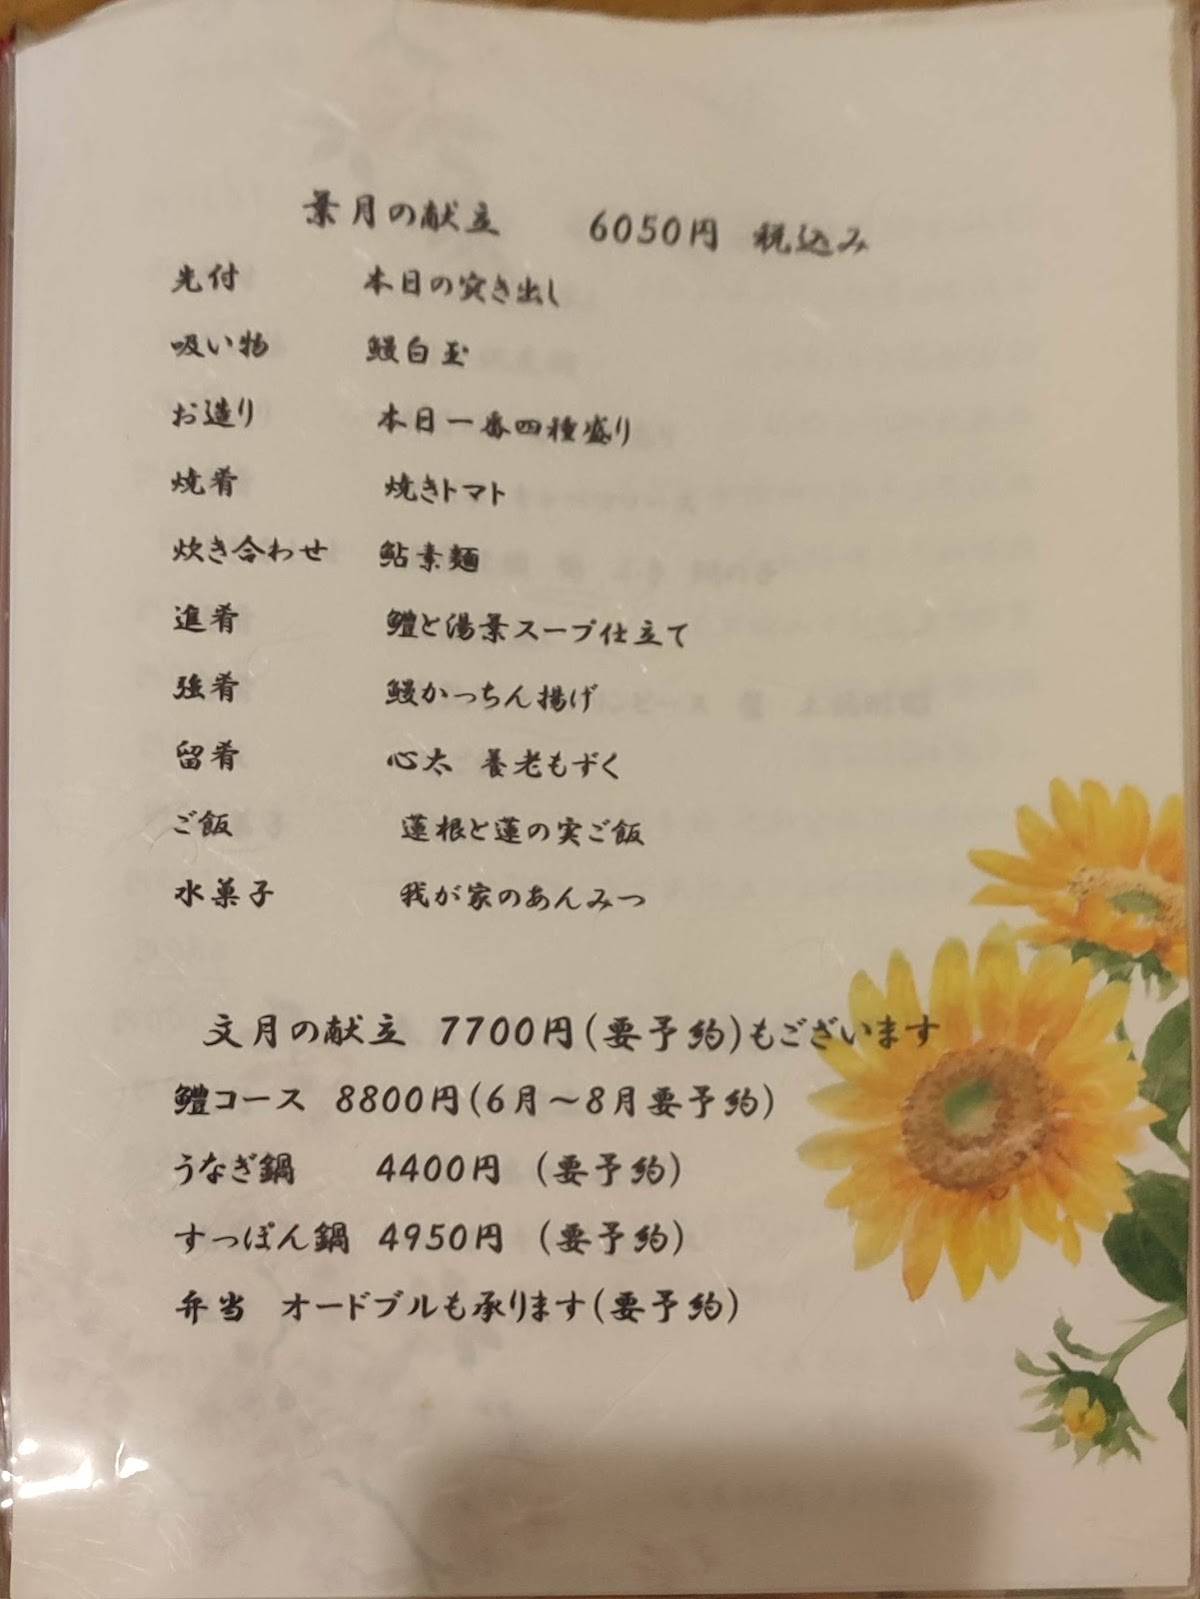 葉月の献立 6050円 税込み
先付 本日の突き出し
吸い物 鰻白玉
お造り 本日一番四種盛り
焼肴 焼きトマト
炊き合わせ 鮎素麺
進肴 鱧と湯葉スープ仕立て
強肴 鰻かっちん揚げ
留肴 心太 養老もずく
ご飯 蓮根と蓮の実ご飯
水菓子 我が家のあんみつ
文月の献立 7700円(要予約)もございます
鱧コース 8800円(6月〜8月要予約)
うなぎ鍋 4400円 (要予約)
すっぽん鍋 4950円 (要予約)
弁当 オードブルも承ります(要予約)